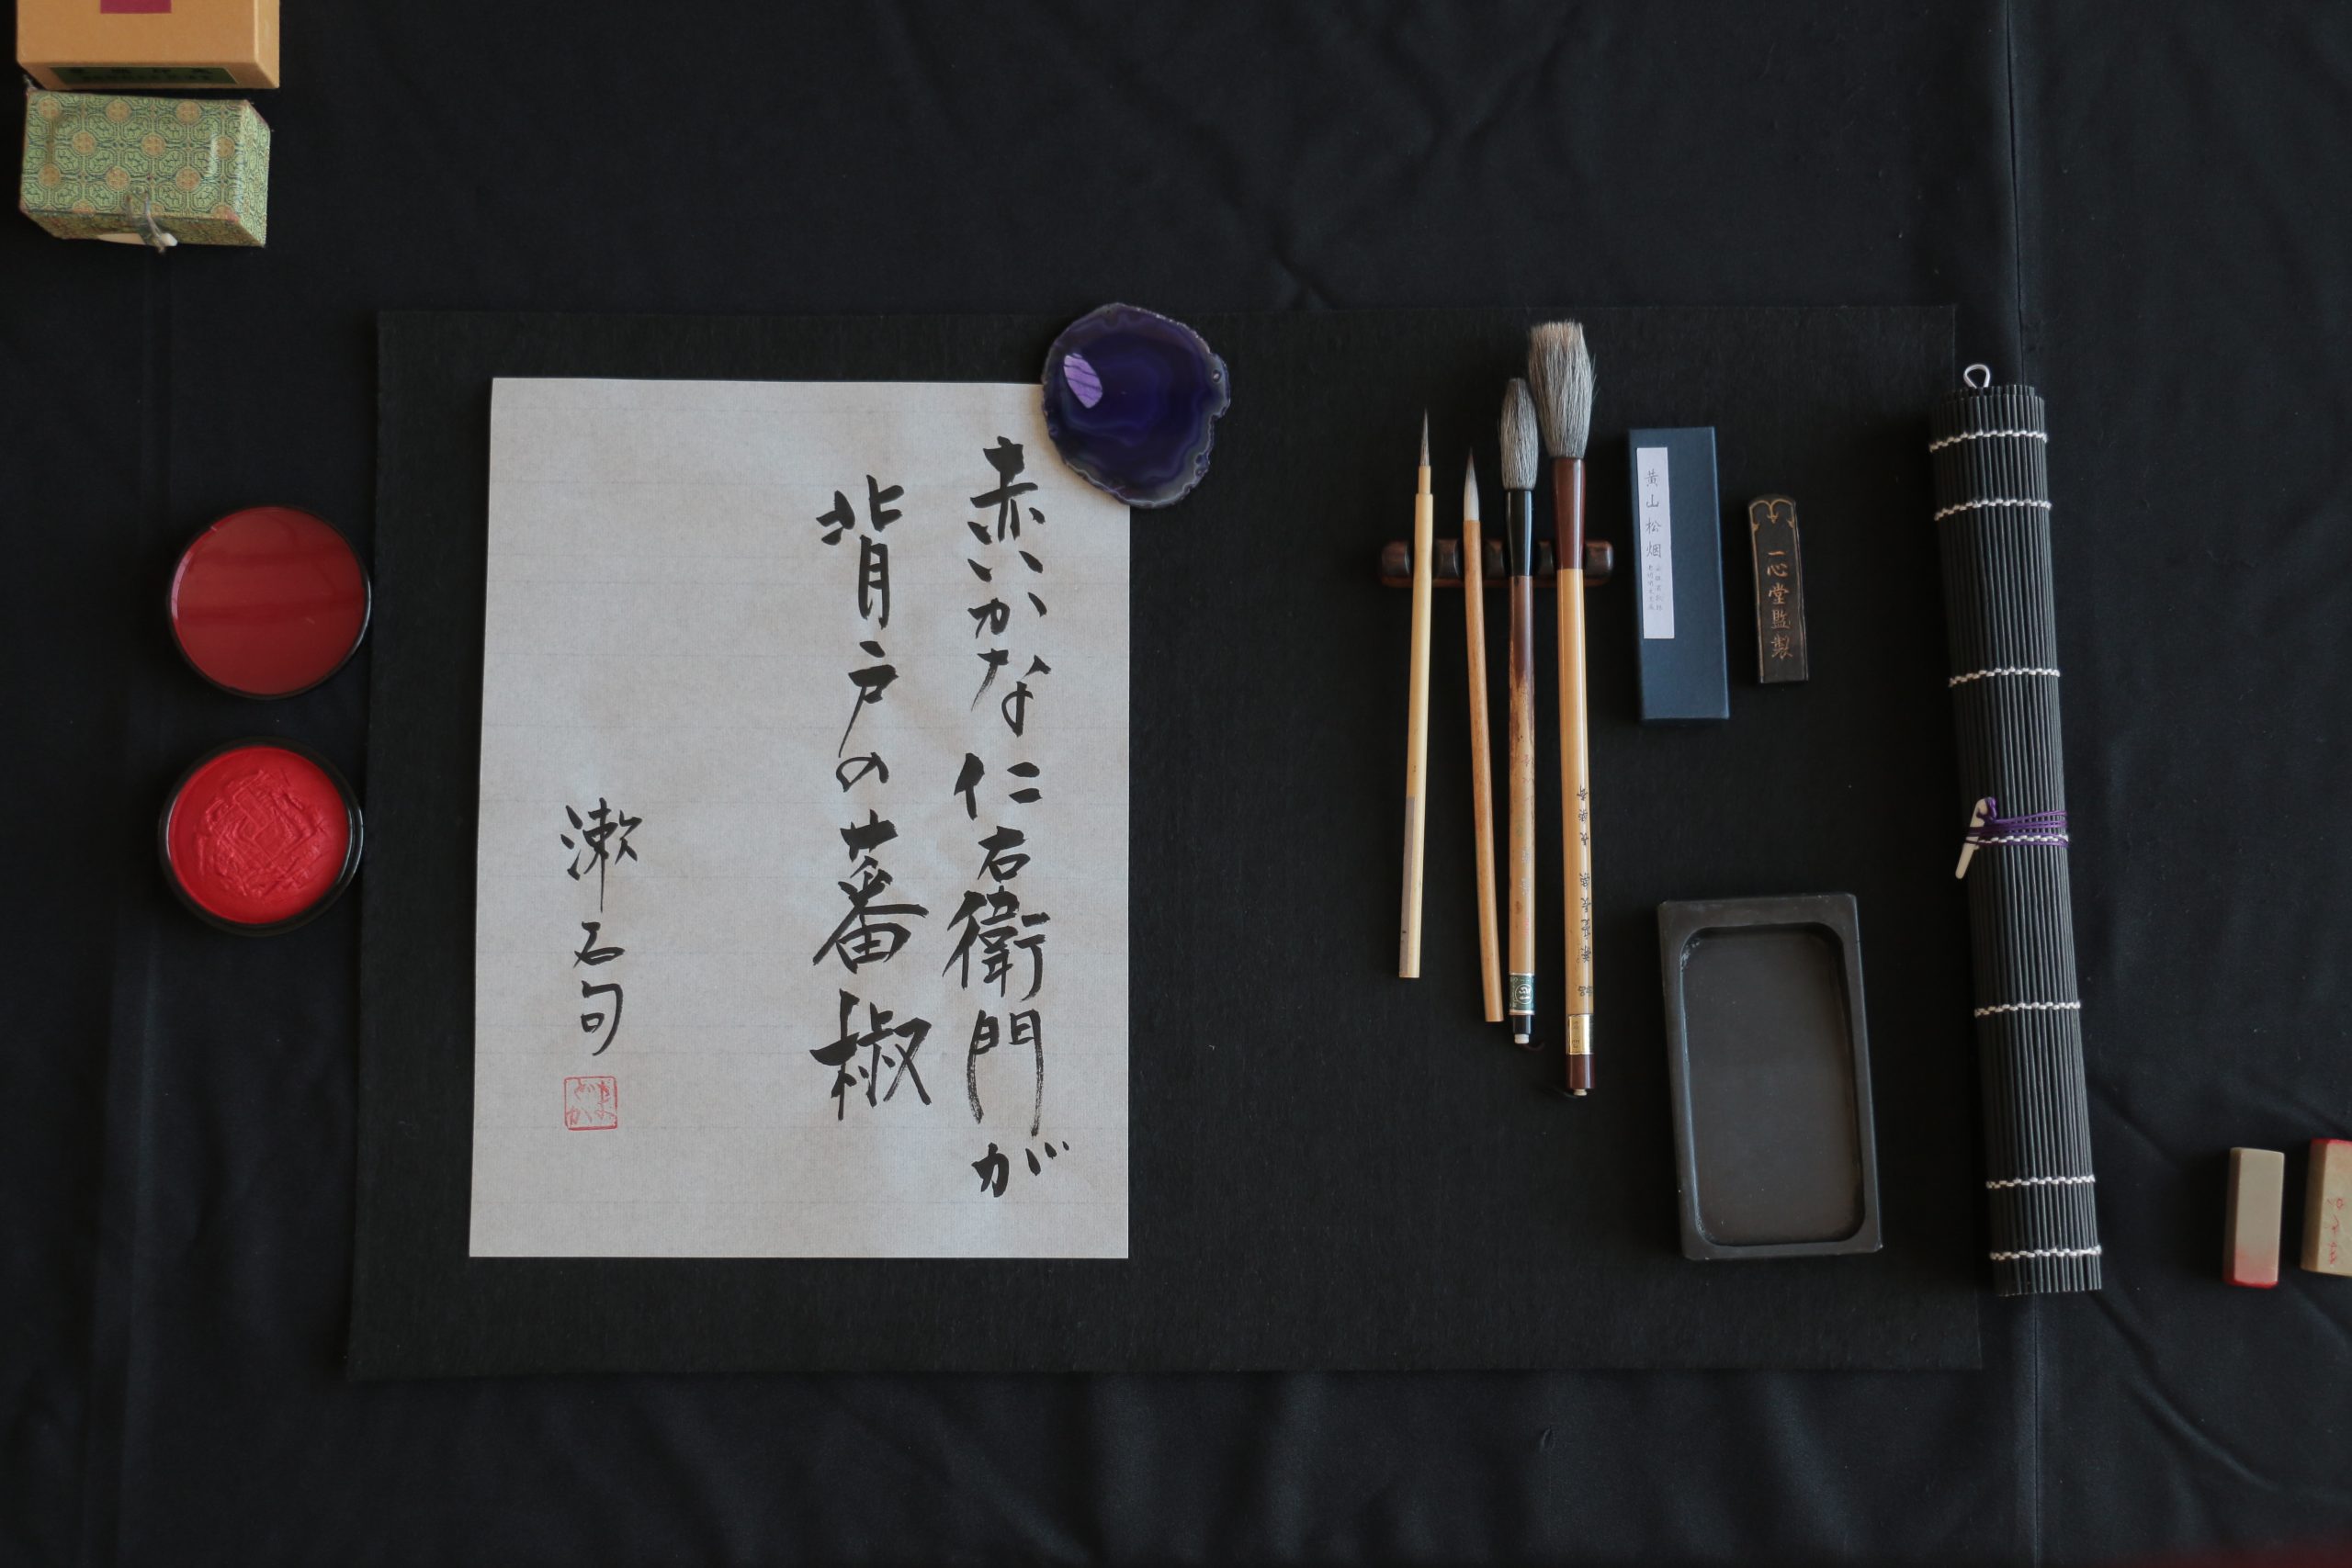 赤いかな仁右衛門が
背戸の蕃椒
漱石句
黄山松烟
一心堂監製